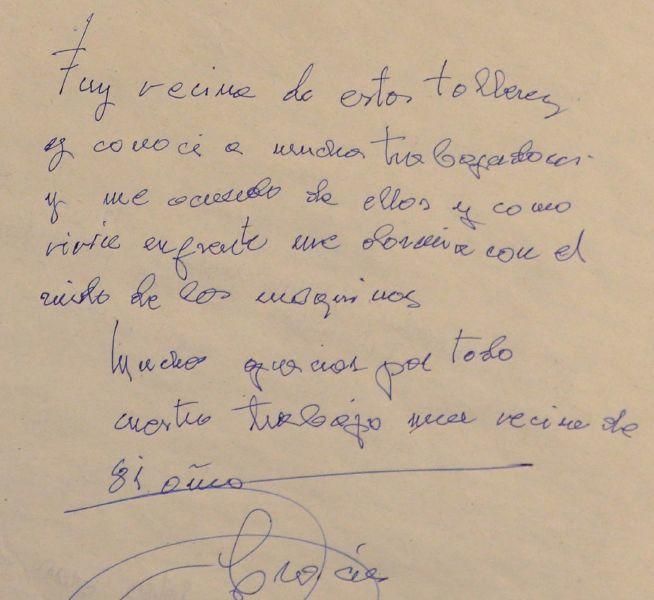 Fuy vecina de estos talleres
y conocí a mucha trabajadores
y me acuerdo de ellos y como
vivía enfrente me dormía con el
ruido de las maquinas
Mucha gracias por todo
vuestro trabajo una vecina de
81 años
Gracias